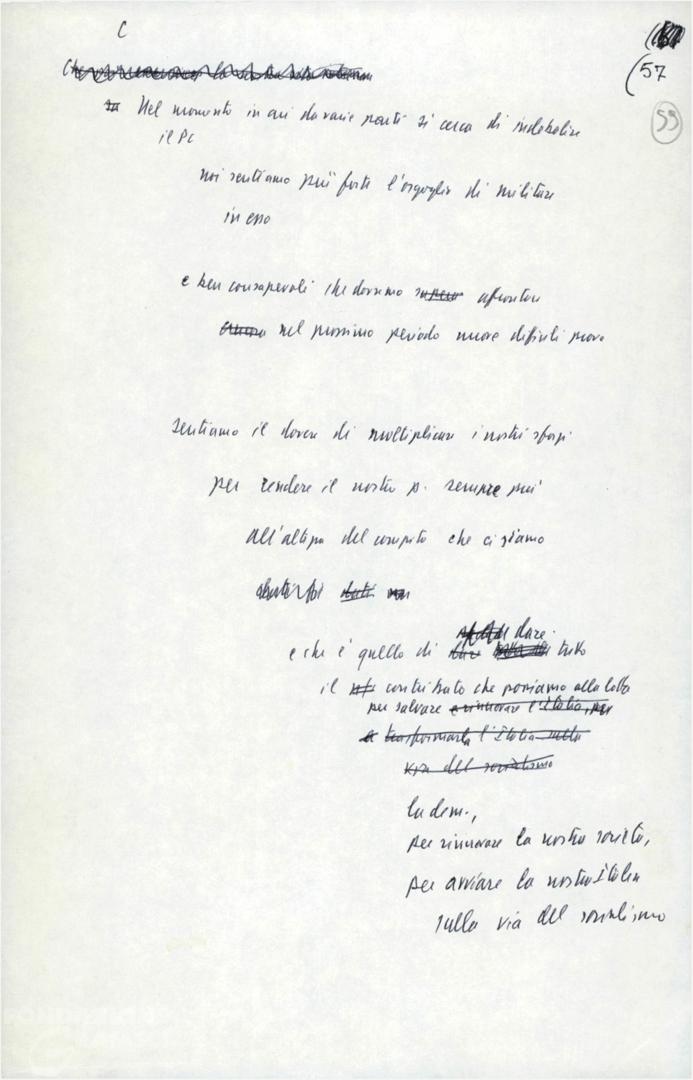 C
(57
59
Nel momento in cui da varie parti si cerca di indebolire
il PC
noi sentiamo più forte l'orgoglio di militare
in esso
e ben consapevoli che dovremo affrontare
ancora nel prossimo periodo nuove difficili prove
sentiamo il dovere di moltiplicare i nostri sforzi
per rendere il nostro p. sempre più
all'altezza del compito che ci siamo
dati
dare
e che è quello di dare tutto
il contributo che possiamo alla lotta
per salvare e rinnovare l'Italia, per
e trasformarla l'Italia sulla
via del socialismo
la dem.,
per rinnovare la nostra società,
per avviare la nostra Italia
sulla via del socialismo